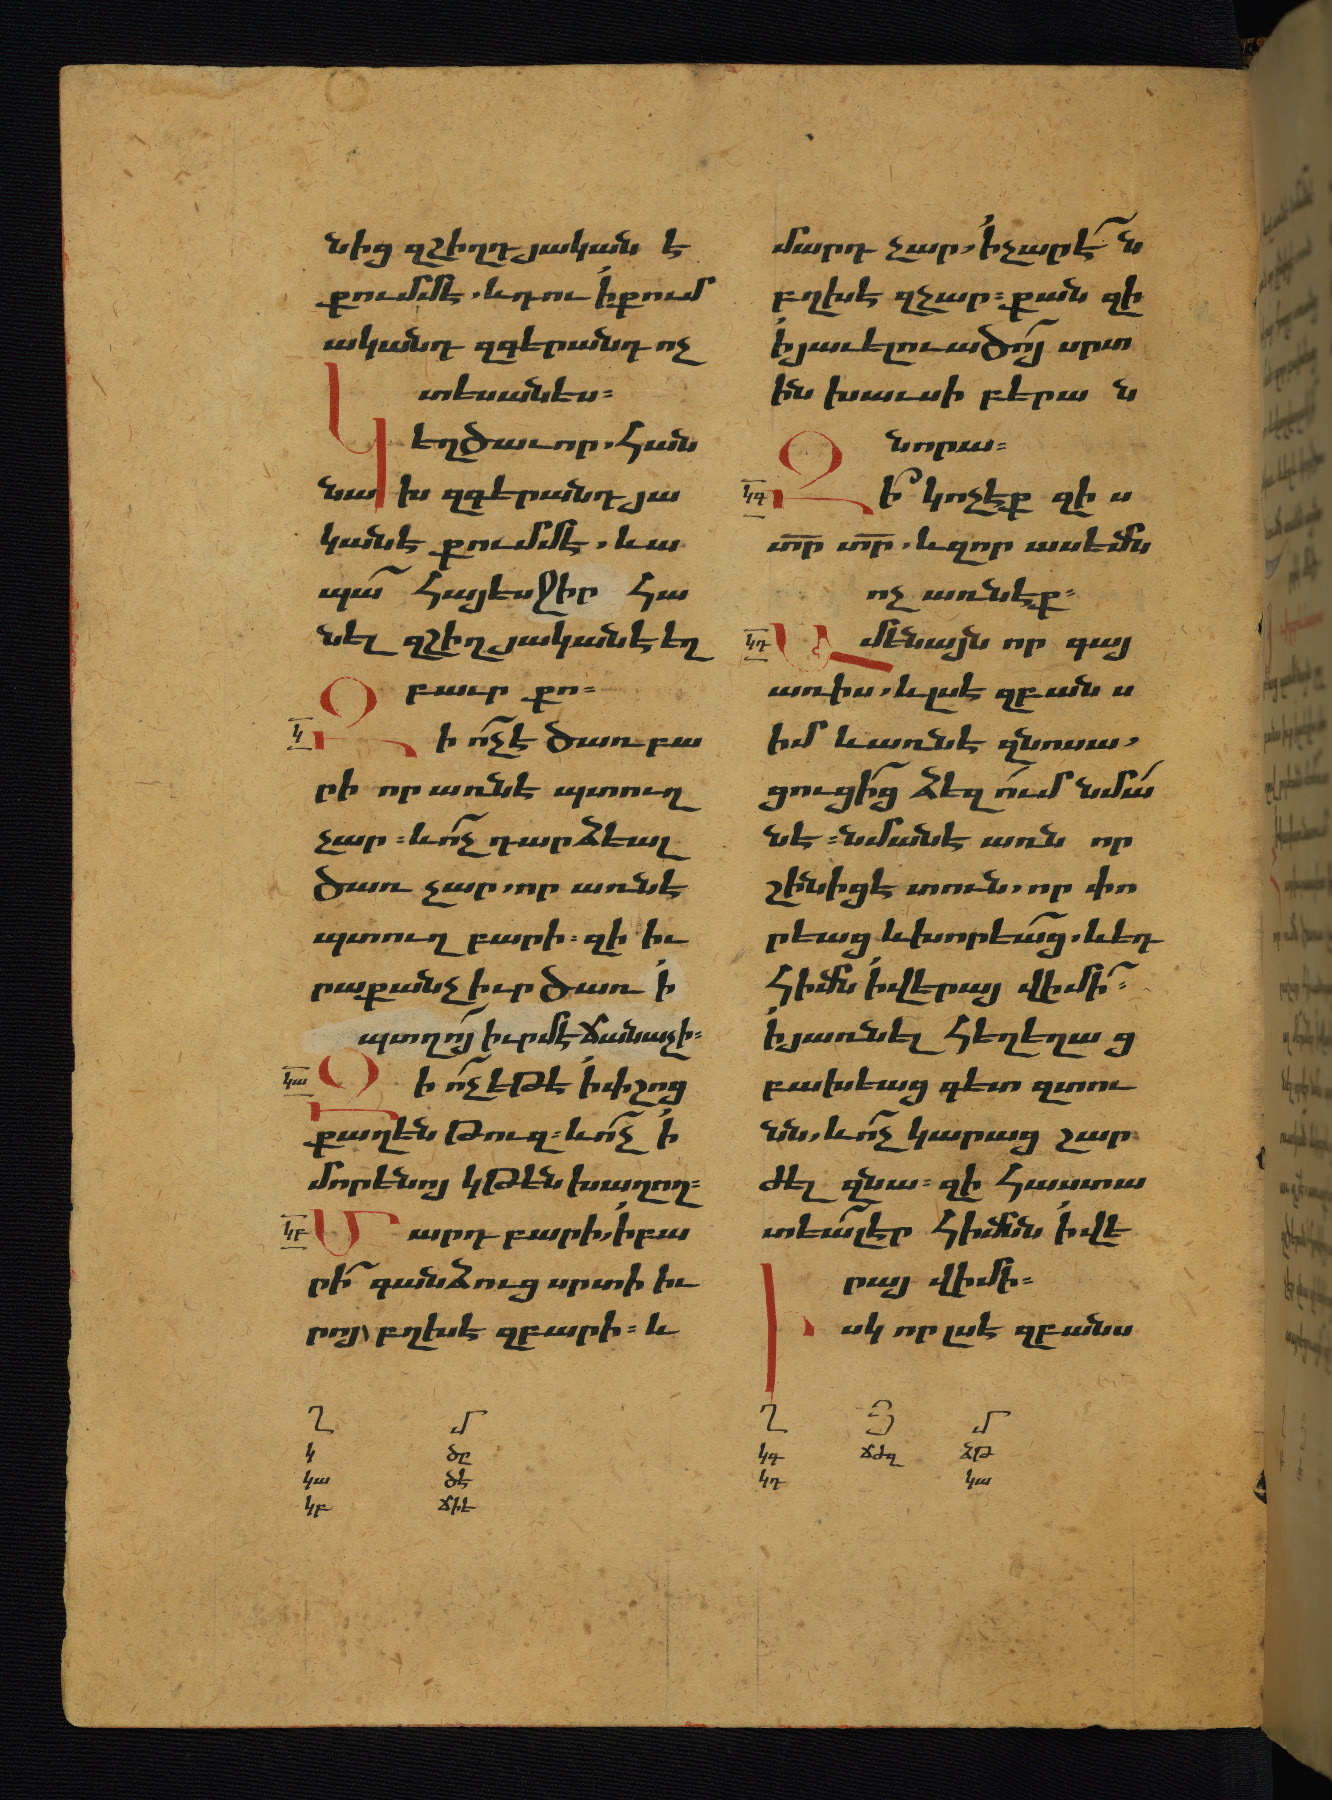 նից զշիղդ յական է
քումմէ, և դու ի քում
ականդ զգերանդ ոչ
տեսանես։
Կեղծաւոր, հան
նախ զգերանդ յա
կանէ քումմէ, և ա
պա հայեսջիր հա
նել զշիղ յականէ եղ
բաւր քո։
կ
Զի ոչ է ծառ բա
րի որ առնէ պտուղ
չար։ և ոչ դարձեալ
ծառ չար, որ առնէ
պտուղ բարի։ զի իւ
րաքանչիւր ծառ ի
պտղոյ իւրմէ ճանաչի։
կա
Զի ոչ եթէ ի փշոց
քաղեն թուզ։ և ոչ ի
մորենոյ կթեն խաղող։
կբ
Մարդ բարի, ի բա
րի գանձուց սրտի իւ
րոյ բղխէ զբարի։ և
մարդ չար, ի չարէ ն
բղխէ զչար։ քան զի
ի յաւելուածոյ սրտ
ին խաւսի բերա ն
նորա։
կգ
Զի կոչէք զի ս
տր տր, և զոր ասեմն
ոչ առնէք։
կդ
Ամենայն որ գայ
առիս, և լսէ զբան ս
իմ և առնէ զնոսա,
ցուցից ձեզ ում նմա
նէ։ նմանէ առն որ
շինիցէ տուն, որ փո
րեաց և խորեաց, և եդ
հիմն ի վերայ վիմի։
ի յառնել հեղեղա ց
բախեաց գետ զտու
նն, և ոչ կարաց շար
ժել զնա։ զի հաստա
տեալ էր հիմնն ի վե
րայ վիմի։
Իսկ որ լսէ զբանս
Ղ Մ
կ ծը
կա ծէ
կբ ճիէ
Ղ Յ Մ
կգ ճժզ ձթ
կդ կա